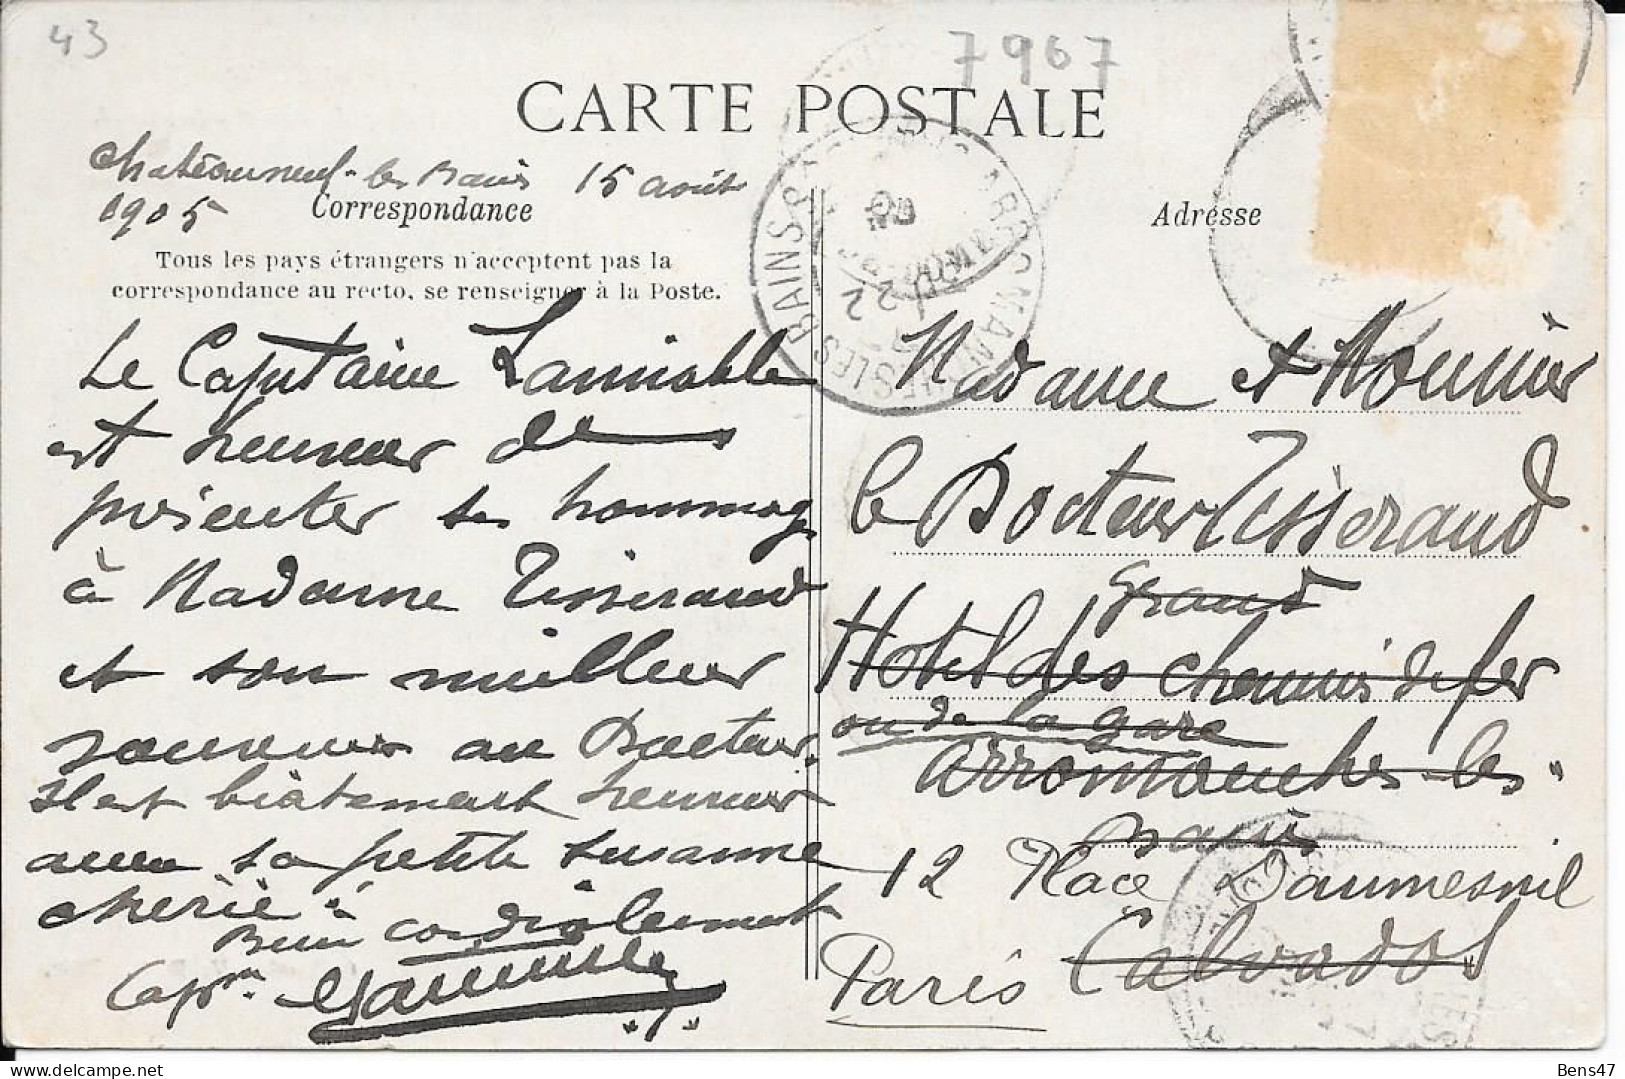 43
7967
CARTE POSTALE
Chateauneuf-les Bains 15 août
1905
Correspondance
Tous les pays étrangers n'acceptent pas la
correspondance au recto, se renseigner à la Poste.
Le Capitaine Lamiable
est heureux de
présenter ses hommages
à Madame Tisserand
et son meilleur
souvenir au Docteur.
Il est béatement heureux
avec sa petite Susanne
chérie!
Bien cordialement
Capne. Lamiable
Adresse
Madame et Monsieur
le Docteur Tisserand
Grand
Hotel des chemins de fer
ou de la gare
Arromanches-les-
Bains
12 Place Daumesnil
Calvados
Paris
Bens47